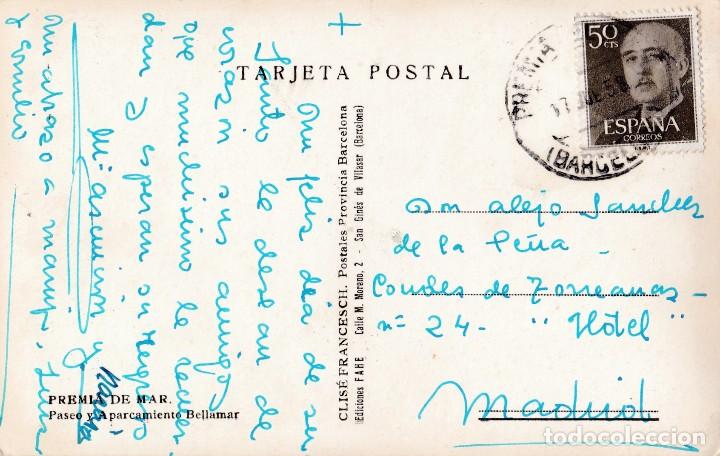 +
TARJETA POSTAL
50
CTS
ESPAÑA
CORREOS
PREMIA
17 JUL 5
(BARCEL
Un feliz dia de su
Santo le desean de
corazon sus amigos
que muchisimo le recuer
dan y esperan su regreso
Mª Asuncion y
Maria
Un abrazo a
y Emilio
CLISÉ FRANCESCH. Postales Provincia Barcelona
Ediciones FAHE Calle M. Moreno, 2 - San Ginés de Vilasar (Barcelona)
Don Alejo Sanchez
de la Peña -
Condes de Torreanaz -
nº 24 - "Hotel"
Madrid
PREMIA DE MAR.
Paseo y Aparcamiento Bellamar
todocoleccion